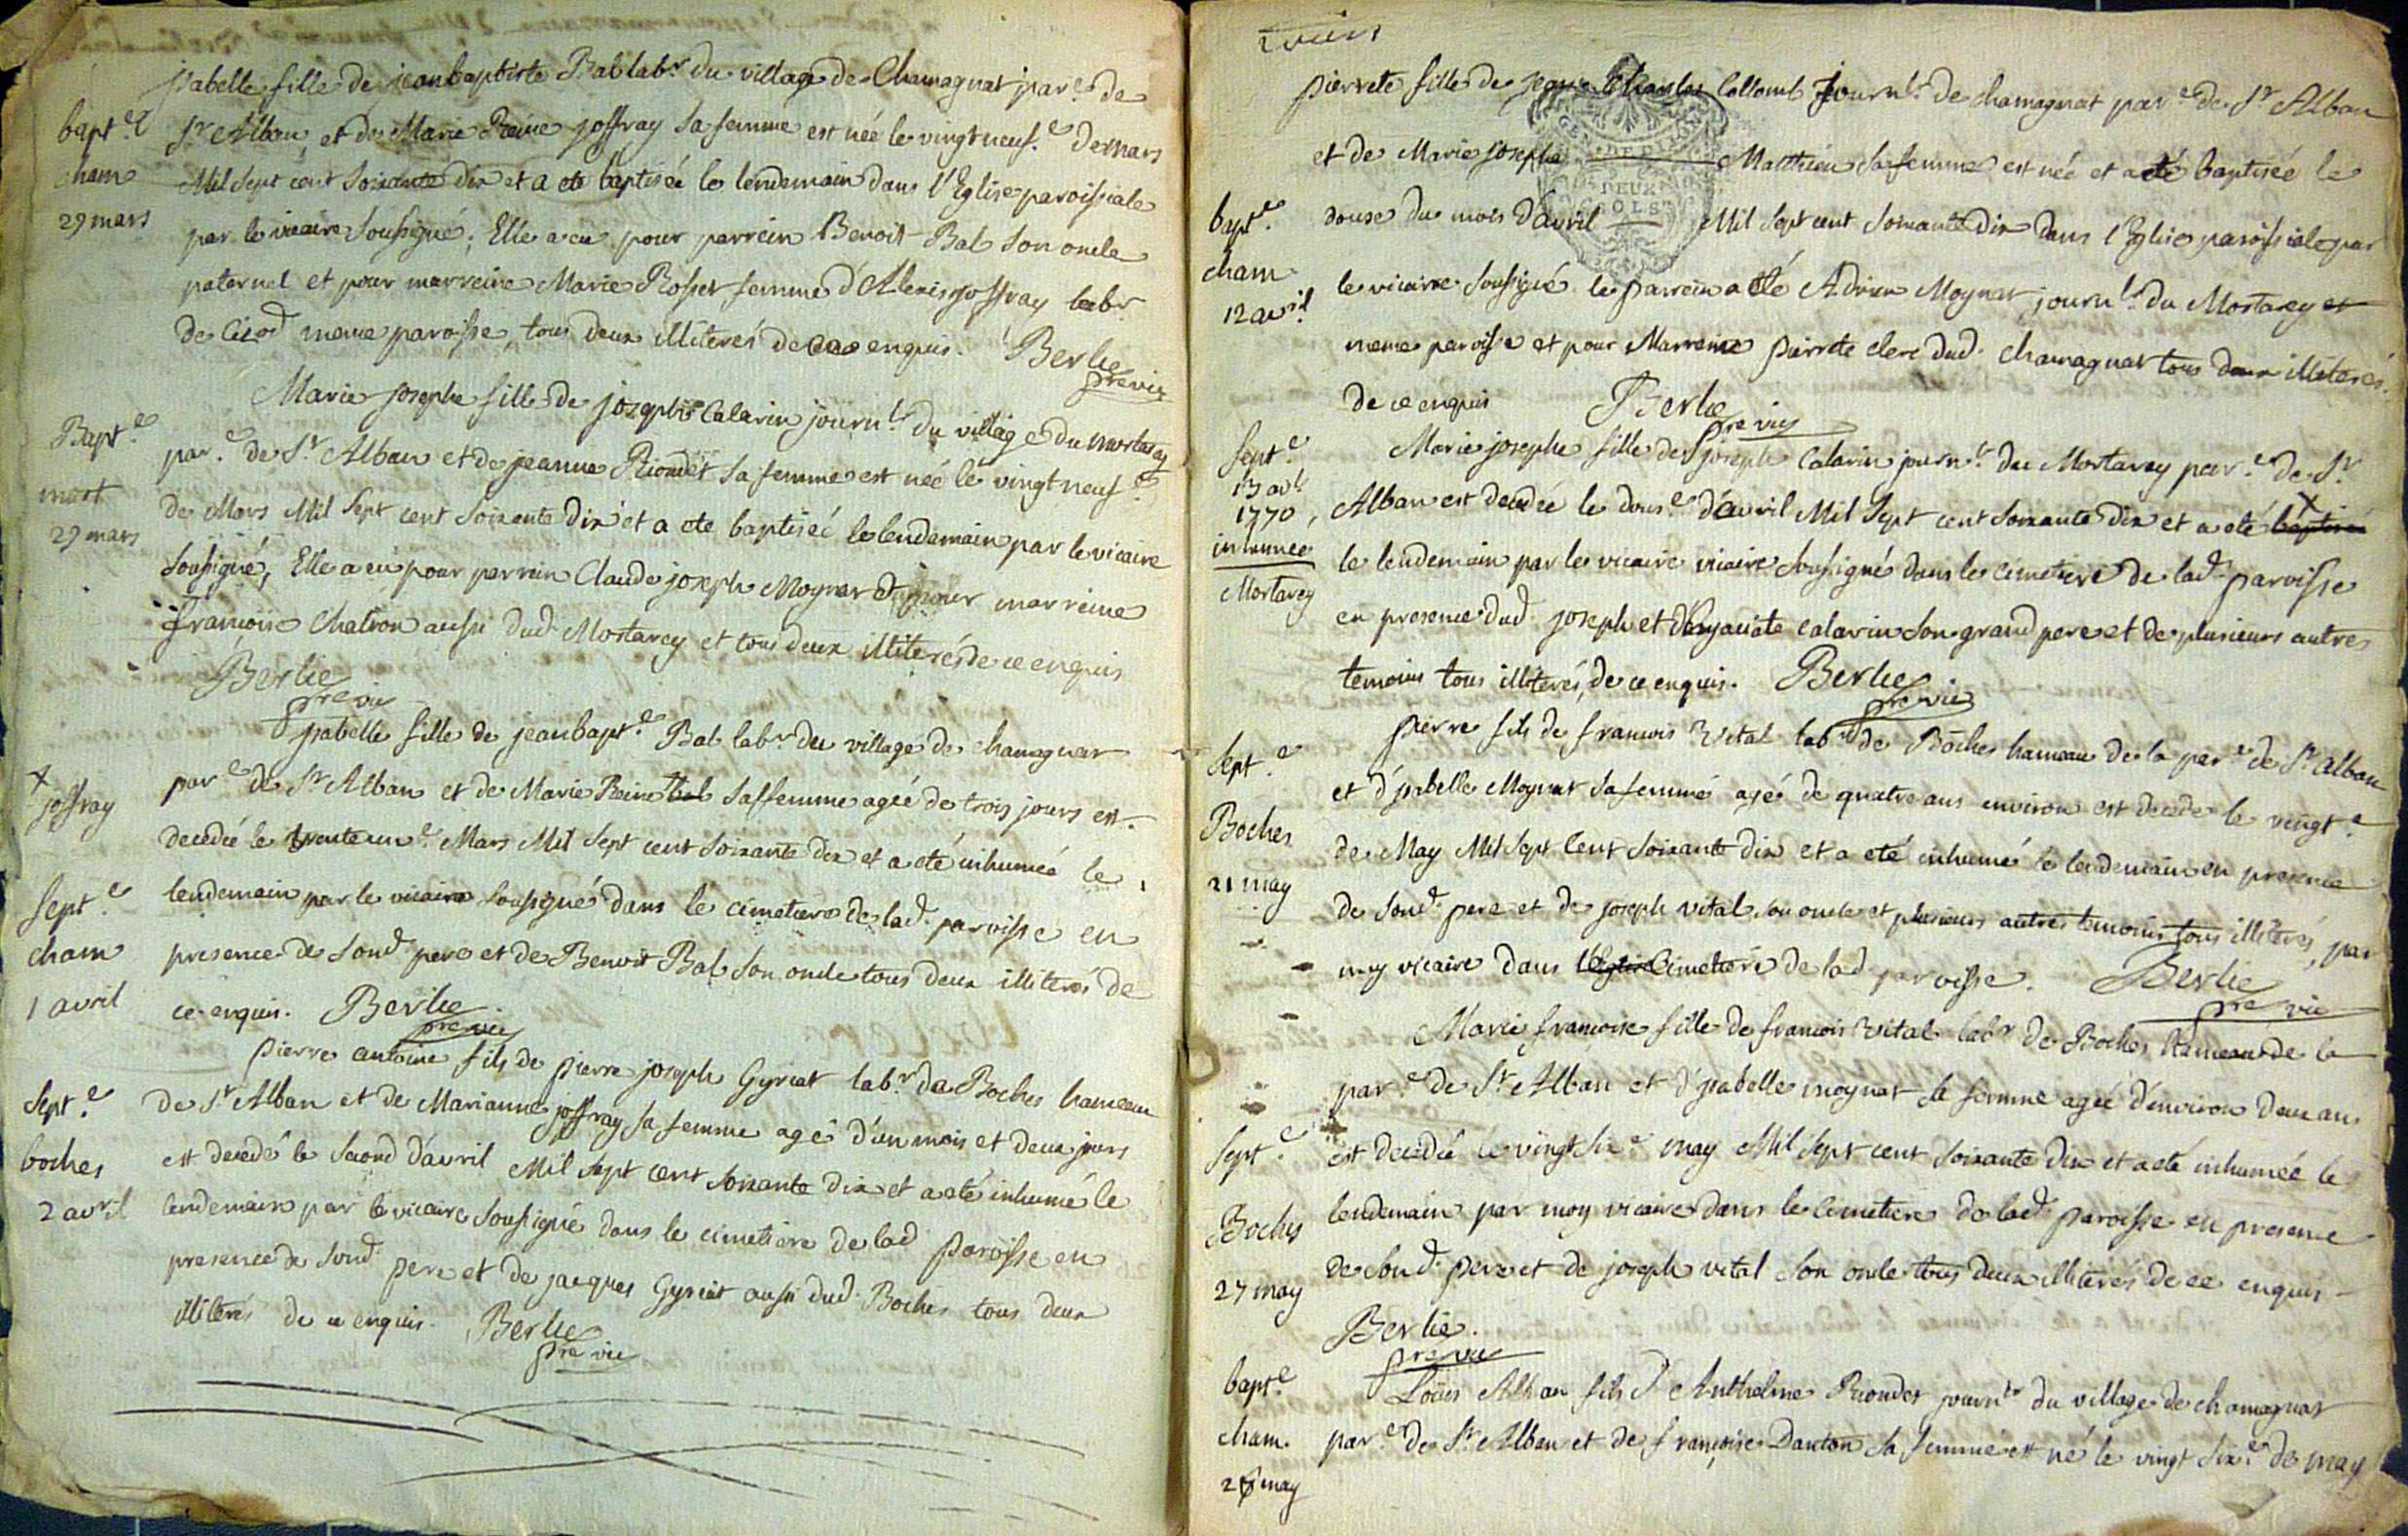 jsabelle fille de jeanbaptiste Bal lab.r du village de Chamagnat par.e de
bapt.e
St Alban, et de Marie Reine joffray sa femme est née le vingtneuf.e de mars
cham
Mil Sept cent Soixante dix et a eté baptiseé le lendemain dans l'Eglise paroissiale
29 mars
par le vicaire Soussigné; Elle a eu pour parrein Benoit Bal Son oncle
paternel et pour marreine Marie Rosset femme d'Alexis joffray labr
de Cizod meme paroisse, tous deux illiterés de ce enquis. Berlie
pre vic
Marie josephe fille de joseph Calarin journ.r du village du mortarey
Bapt.e
par.e de St Alban et de jeanne Riondet sa femme est neé le vingt neuf.e
mort
de Mars Mil Sept cent Soixante dix et a ete baptiseé le lendemain par le vicaire
29 mars
Soussigné, Elle a eu pour parrain Claude joseph Moynat et pour marreine
francoise Chatron aussi dud. Mortarey et tous deux illiterés de ce enquis
Berlie
pre vic
jsabelle fille de jeanbapt.e Bal lab.r du village de chamagnat
x joffray
par.e de St Alban et de Marie Reine Bal sa femme ageé de trois jours est
decedeé le trente un.e Mars Mil Sept cent Soixante dix et a eté inhumeé le
Sept.e
lendemain par le vicaire Soussigné dans le cimetiere de lad. paroisse en
cham
presence de Sond. pere et de Benoit Bal Son oncle tous deux illiterés de
1 avril
ce enquis. Berlie
pre vic
Pierre antoine fils de pierre joseph Gyriat lab.r de Boches hameau
Sept.e
de St Alban et de Marianne joffray sa femme agé d'un mois et deux jours
boches
est decedé le Second d'avril Mil Sept cent Soixante dix et a eté inhumé le
2 avril
lendemain par le vicaire Soussigné dans le cimetiere de lad. Paroisse en
presence de Sond. pere et de jacques Gyriat aussi dud. Boches tous deux
illiterés de ce enquis. Berlie
pre vic
Pierrete fille de jean Charles Collomb journ.r de chamagnat par.e de St Alban
et de Marie josephe Matthieu sa femme est née et a eté baptiseé le
bapt.e
douze du mois d'avril Mil Sept cent Soixante dix dans l'Eglise paroissiale par
cham
le vicaire Soussigné le parrein a eté Adrien Moynat journ.r du Mortarey et
12 avril
meme paroisse et pour Marreine Pierrete clerc dud. chamagnat tous deux illiterés
de ce enquis Berlie
pre vic
Sept.e
Marie josephe fille de joseph Calarin journ.r du Mortarey par.e de St
13 avl
1770,
Alban est decedeé le douz.e d'avril Mil Sept cent Soixante dix et a eté baptiseé x
inhumee
le lendemain par le vicaire vicaire Soussigné dans le cimetiere de lad. paroisse
Mortarey
en presence dud. joseph et d'hyacinte calarin Son grand pere et de plusieurs autres
temoins tous illiterés, de ce enquis. Berlie
pre vic
Pierre fils de francois Vital lab.r de Boches hameau de la par.e de St alban
Sept.e
et d'jsabelle Moynat sa femme agé de quatre ans environ est decedé le vingt.e
Boches
de May Mil Sept Cent Soixante dix et a eté inhumé le lendemain en presence
21 may
de Sond. pere et de joseph vital Son oncle et plusieurs autres temoins tous illiterés, par
moy vicaire dans l'Eglise Cimetiere de lad. paroisse. Berlie
pre vic
Marie francoise fille de francois Vital labr de Boches hameau de la
par.e de St Alban et d'jsabelle moynat sa femme ageé d'environ deux ans
Sept.e
est decedeé le vingt Six.e may Mil Sept cent Soixante dix et a eté inhumeé le
Boches
lendemain par moy vicaire dans le cimetiere de lad. Paroisse en presence
27 may
de Sond. Pere et de joseph vital Son oncle tous deux illiterés de ce enquis
Berlie.
pre vic
bapt.e
Loüis Alban fils d'Anthelme Riondet journ.r du village de chamagnat
cham.
par.e de St Alban et de françoise Danton sa femme est né le vingt Six.e de may
26 may